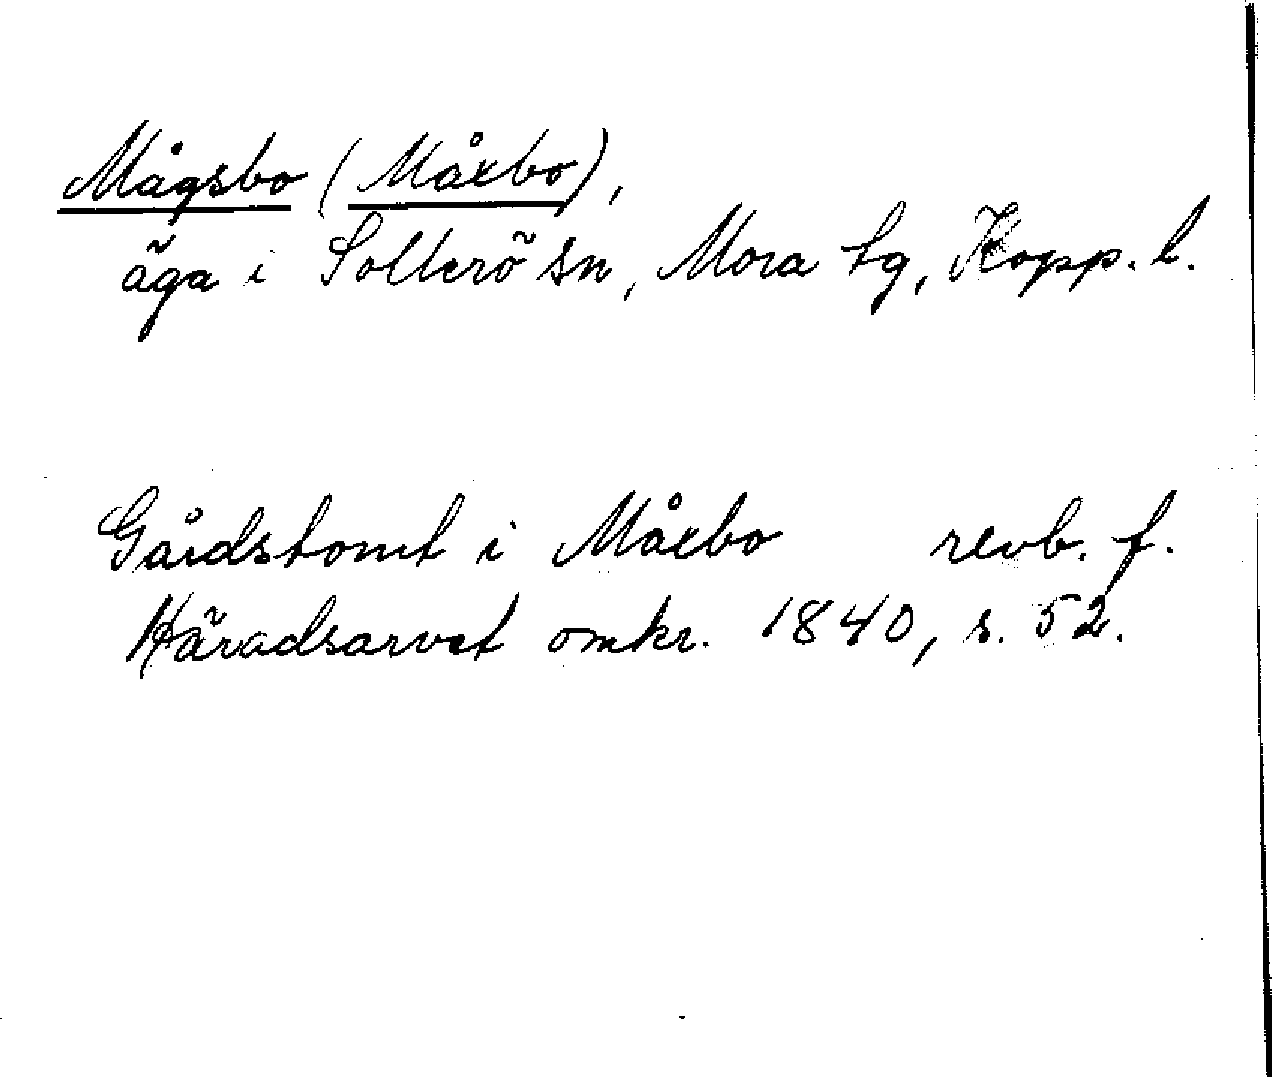 Mågsbo (Måxbo),
äga i Sollerö sn, Mora tg, Kopp. l.
Gårdstomt i Måxbo revb. f.
Häradsarvet omkr. 1840, s. 52.